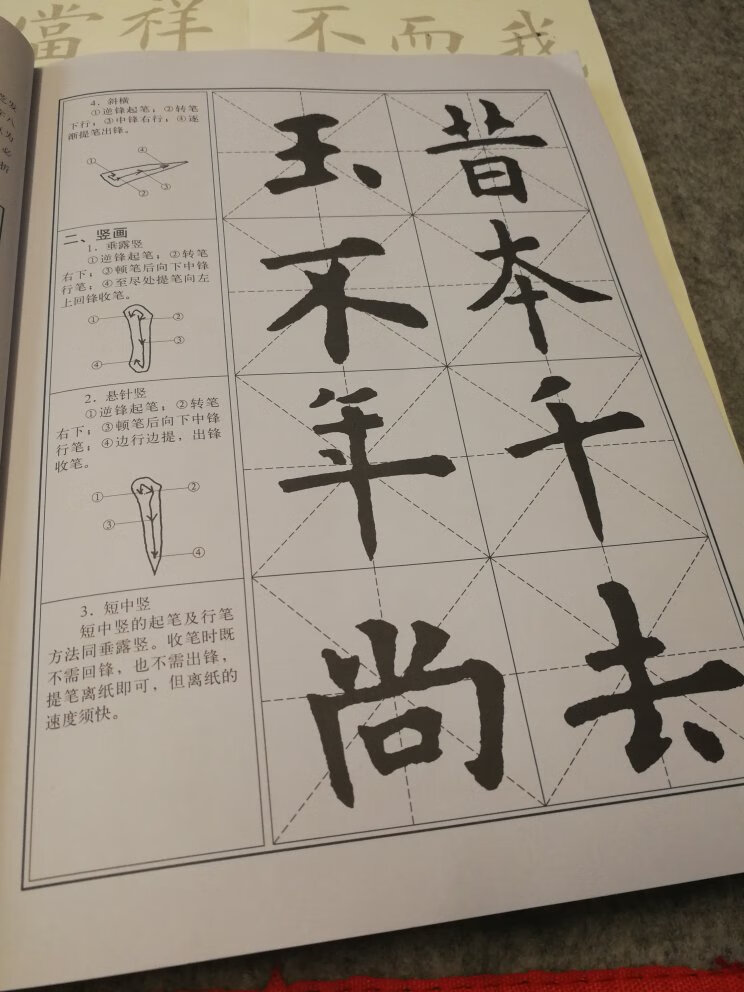 當祥不而我
4．斜横
①逆锋起笔；②转笔
下行；③中锋右行；④逐
渐提笔出锋。
①
④
②
③
二、竖画
1．垂露竖
①逆锋起笔；②转笔
右下；③顿笔后向下中锋
行笔；④至尽处提笔向左
上回锋收笔。
①
②
③
④
2．悬针竖
①逆锋起笔；②转笔
右下；③顿笔后向下中锋
行笔；④边行边提，出锋
收笔。
①
②
③
④
3．短中竖
短中竖的起笔及行笔
方法同垂露竖。收笔时既
不需回锋，也不需出锋，
提笔离纸即可，但离纸的
速度须快。
玉昔
不本
年千
尚去